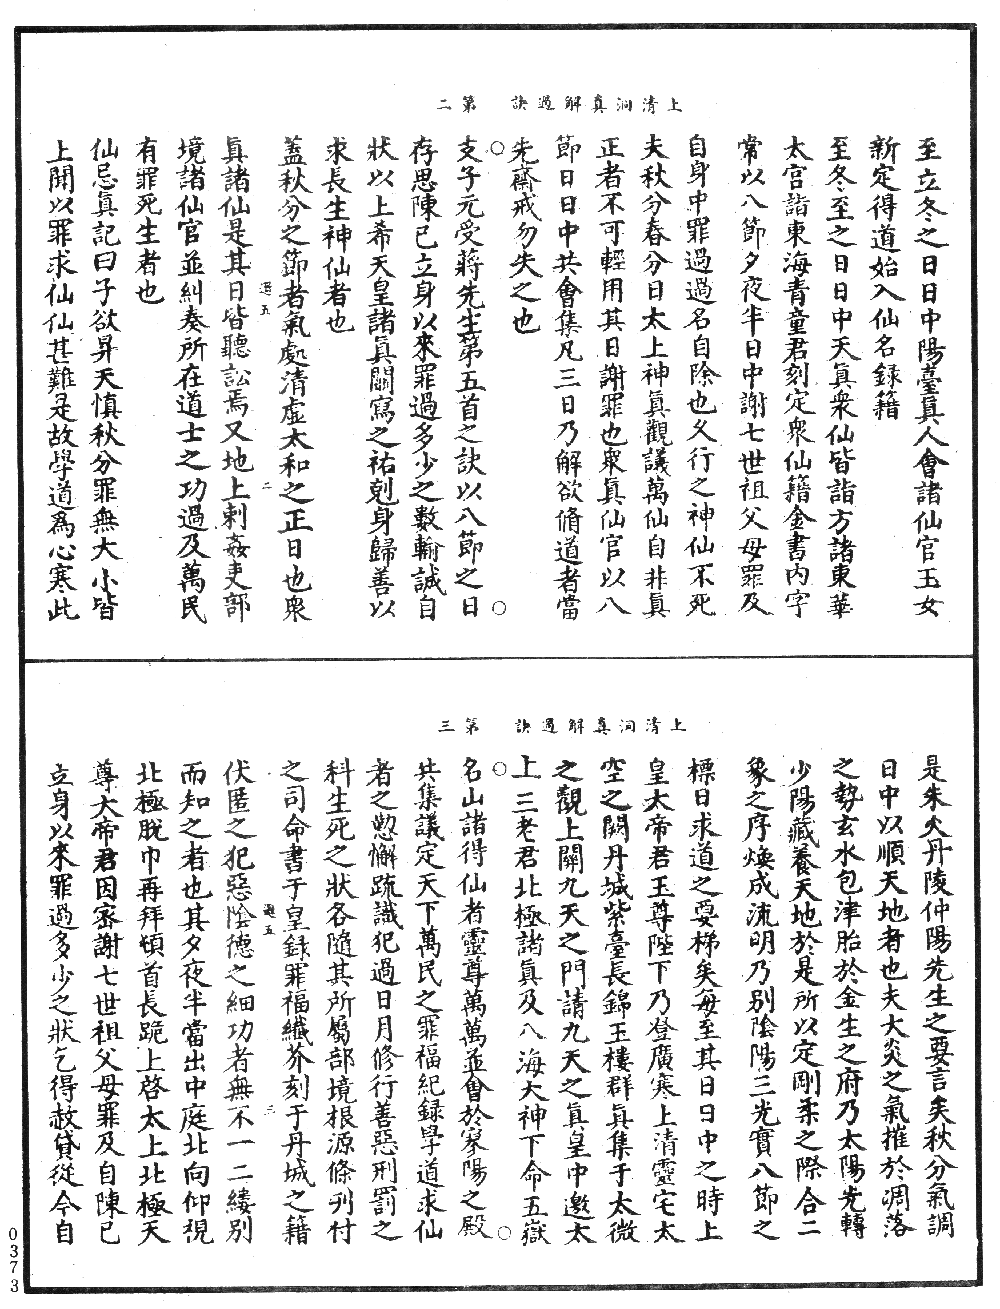 上清洞真解過訣　第二
至立冬之日日中陽臺真人會諸仙官玉女
新定得道始入仙名録籍
至冬至之日日中天真衆仙皆詣方諸東華
太宫詣東海青童君刻定衆仙籍金書内字
常以八節夕夜半日中謝七世祖父母罪及
自身中罪過過名自除也久行之神仙不死
夫秋分春分日太上神真觀議萬仙自非真
正者不可輕用其日謝罪也衆真仙官以八
節日日中共會集凡三日乃解欲脩道者當
先齋戒勿失之也
支子元受蔣先生第五首之訣以八節之日
存思陳已立身以來罪過多少之數輸誠自
狀以上希天皇諸真關寫之祐剋身歸善以
求長生神仙者也
蓋秋分之節者氣處清虚太和之正日也衆
過五　二
真諸仙是其日皆聽訟焉又地上刺姦吏部
境諸仙官並糾奏所在道士之功過及萬民
有罪死生者也
仙忌真記曰子欲昇天慎秋分罪無大小皆
上聞以罪求仙仙甚難是故學道爲心寒此
上清洞真解過訣　第三
是朱火丹陵仲陽先生之要言矣秋分氣調
日中以順天地者也夫大炎之氣摧於凋落
之勢玄水包津胎於金生之府乃太陽光轉
少陽藏養天地於是所以定剛柔之際合二
象之序煥成流明乃别陰陽三光實八節之
標日求道之要梯矣每至其日日中之時上
皇太帝君玉尊陛下乃登廣寒上清靈宅太
空之闕丹城紫臺長錦玉樓群真集于太微
之觀上關九天之門請九天之真皇中邀太
上三老君北極諸真及八海大神下命五嶽
名山諸得仙者靈尊萬萬並會於寥陽之殿
共集議定天下萬民之罪福紀録學道求仙
者之懃懈疏識犯過日月修行善惡刑罰之
科生死之狀各隨其所屬部境根源條列付
之司命書于皇録罪福纖芥刻于丹城之籍
過五　三
伏匿之犯惡陰德之細功者無不一二縷别
而知之者也其夕夜半當出中庭北向仰視
北極脱巾再拜頓首長跪上啓太上北極天
尊大帝君因密謝七世祖父母罪及自陳已
立身以來罪過多少之狀乞得赦貸從今自
0373